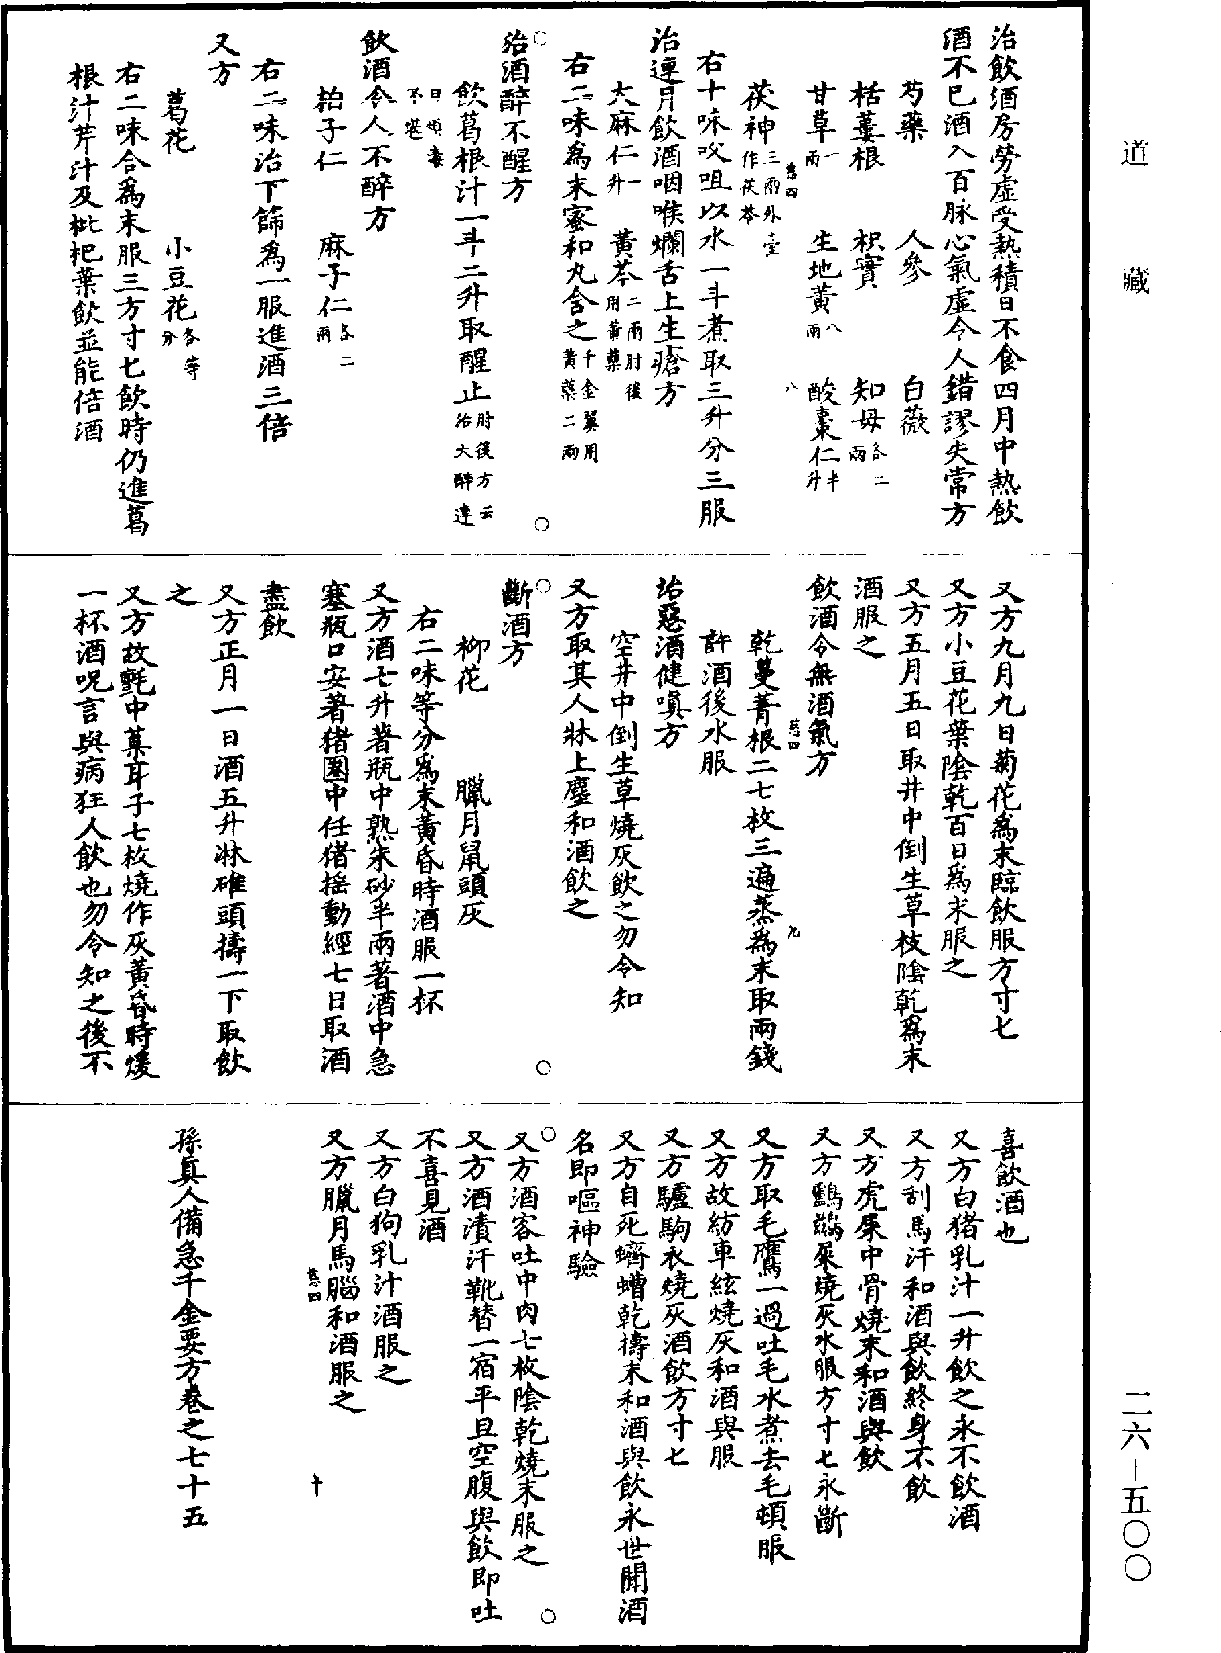 道藏
治飲酒房勞虛受熱積日不食四月中熱飲
酒不已酒入百脉心氣虛令人錯謬失常方
芍藥 人參 白薇
栝蔞根 枳實 知母各二兩
甘草一兩 生地黃八兩 酸棗仁半升
茯神三兩外臺作茯苓
右十味㕮咀以水一斗煮取三升分三服
治連月飲酒咽喉爛舌上生瘡方
大麻仁一升 黃芩二兩肘後用黃蘗
右二味爲末蜜和丸含之千金翼用黃蘗二兩
治酒醉不醒方
飲葛根汁一斗二升取醒止肘後方云治大醉連
日煩毒不堪
飲酒令人不醉方
柏子仁 麻子仁各二兩
右二味治下篩爲一服進酒三倍
又方
葛花 小豆花各等分
右二味合爲末服三方寸匕飲時仍進葛
根汁芹汁及枇杷葉飲並能倍酒
又方九月九日菊花爲末臨飲服方寸匕
又方小豆花葉陰乾百日爲末服之
又方五月五日取井中倒生草枝陰乾爲末
酒服之
飲酒令無酒氣方
乾蔓菁根二七枚三遍蒸爲末取兩錢
許酒後水服
治惡酒健嗔方
空井中倒生草燒灰飲之勿令知
又方取其人牀上塵和酒飲之
斷酒方
柳花 臘月鼠頭灰
右二味等分爲末黃昏時酒服一杯
又方酒七升著瓶中熟朱砂半兩著酒中急
塞瓶口安著猪圈中任猪搖動經七日取酒
盡飲
又方正月一日酒五升淋碓頭擣一下取飲
之
又方故氈中菓耳子七枚燒作灰黃昏時煖
一杯酒呪言與病狂人飲也勿令知之後不
喜飲酒也
又方白猪乳汁一升飲之永不飲酒
又方刮馬汗和酒與飲終身不飲
又方虎屎中骨燒末和酒與飲
又方鸕鶿屎燒灰水服方寸匕永斷
又方取毛鷹一過吐毛水煮去毛頓服
又方故紡車絃燒灰和酒與服
又方驢駒衣燒灰酒飲方寸匕
又方自死蠐螬乾擣末和酒與飲永世聞酒
名即嘔神驗
又方酒客吐中肉七枚陰乾燒末服之
又方酒漬汗靴替一宿平旦空腹與飲即吐
不喜見酒
又方白狗乳汁酒服之
又方臘月馬腦和酒服之
孫真人備急千金要方卷之七十五
二六—五〇〇